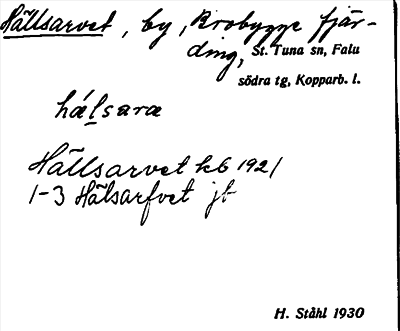 Hällsarvet, by, Brobygge fjär-
ding, St. Tuna sn, Falu
södra tg, Kopparb. l.
hælsara
Hällsarvet kb 1921
1-3 Hälsarfvet jb
H. Ståhl 1930